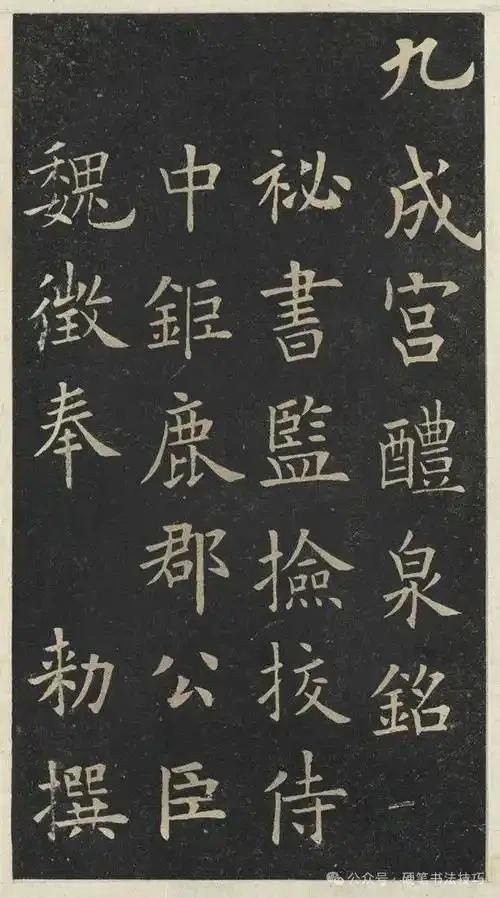 九成宫醴泉銘
祕書監撿挍侍
中鉅鹿郡公臣
魏徵奉 勑撰
公众号·硬笔书法技巧